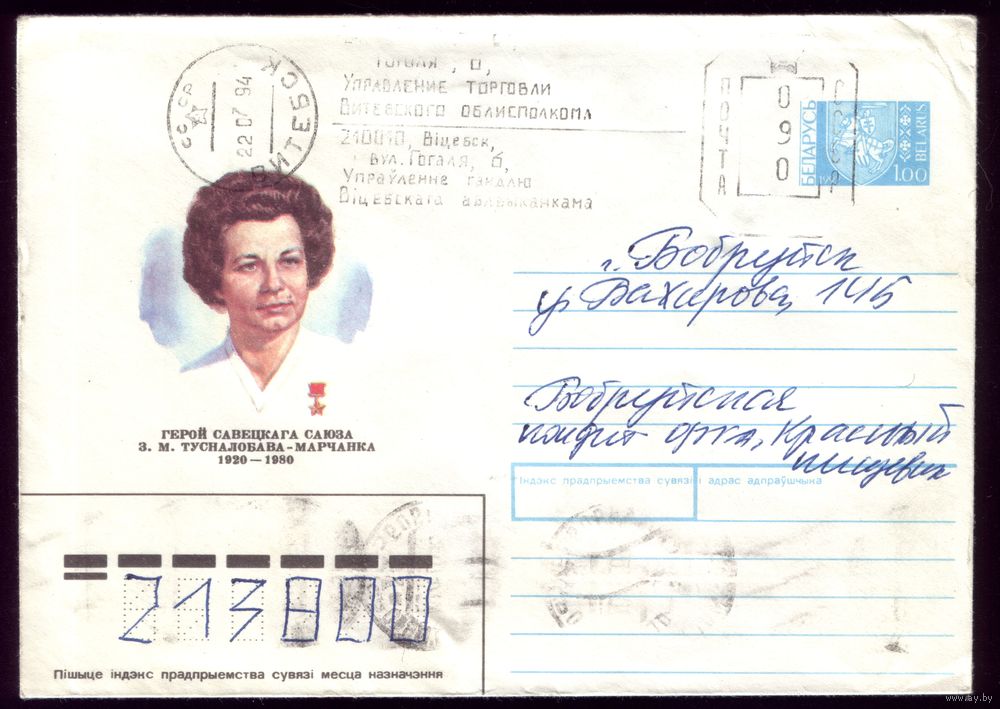 СССР
22 07 94
ВИТЕБСК
Гоголя, 6,
Управление торговли
Витебского облисполкома
210010, Віцебск,
вул. Гогаля, 6,
Упраўленне гандлю
Віцебскага аблвыканкама
ПОЧТА
0 9 0
БЕЛАРУСЬ
BELARUS
1.00
г. Бобруйск
ул Бахарова, 145
Бобруйская
кондит ф-ка, Красный
пищевик
ГЕРОЙ САВЕЦКАГА САЮЗА
З. М. ТУСНАЛОБАВА-МАРЧАНКА
1920—1980
Індэкс прадпрыемства сувязі і адрас адпраўшчыка
213800
Пішыце індэкс прадпрыемства сувязі месца назначэння
www.ay.by